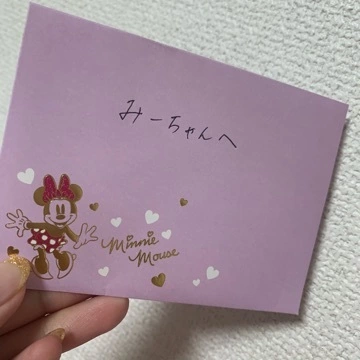 みーちゃんへ
Minnie
Mouse